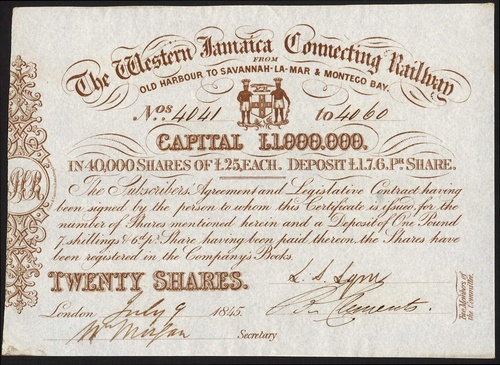 The Western Jamaica Connecting Railway
FROM
OLD HARBOUR TO SAVANNAH-LA-MAR & MONTEGO BAY.
Nos 4041 to 4060
CAPITAL £1,000,000.
IN 40,000 SHARES OF £25, EACH. DEPOSIT £1.7.6. Pr SHARE.
The Subscribers' Agreement and Legislative Contract having
been signed by the person to whom this Certificate is issued for the
number of Shares mentioned herein and a Deposit of One Pound
7 shillings & 6d pr Share having been paid thereon, the Shares have
been registered in the Company's Books.
TWENTY SHARES.
London July 9 1845.
Wm Morgan Secretary
Clements
Two Members of
the Committee.